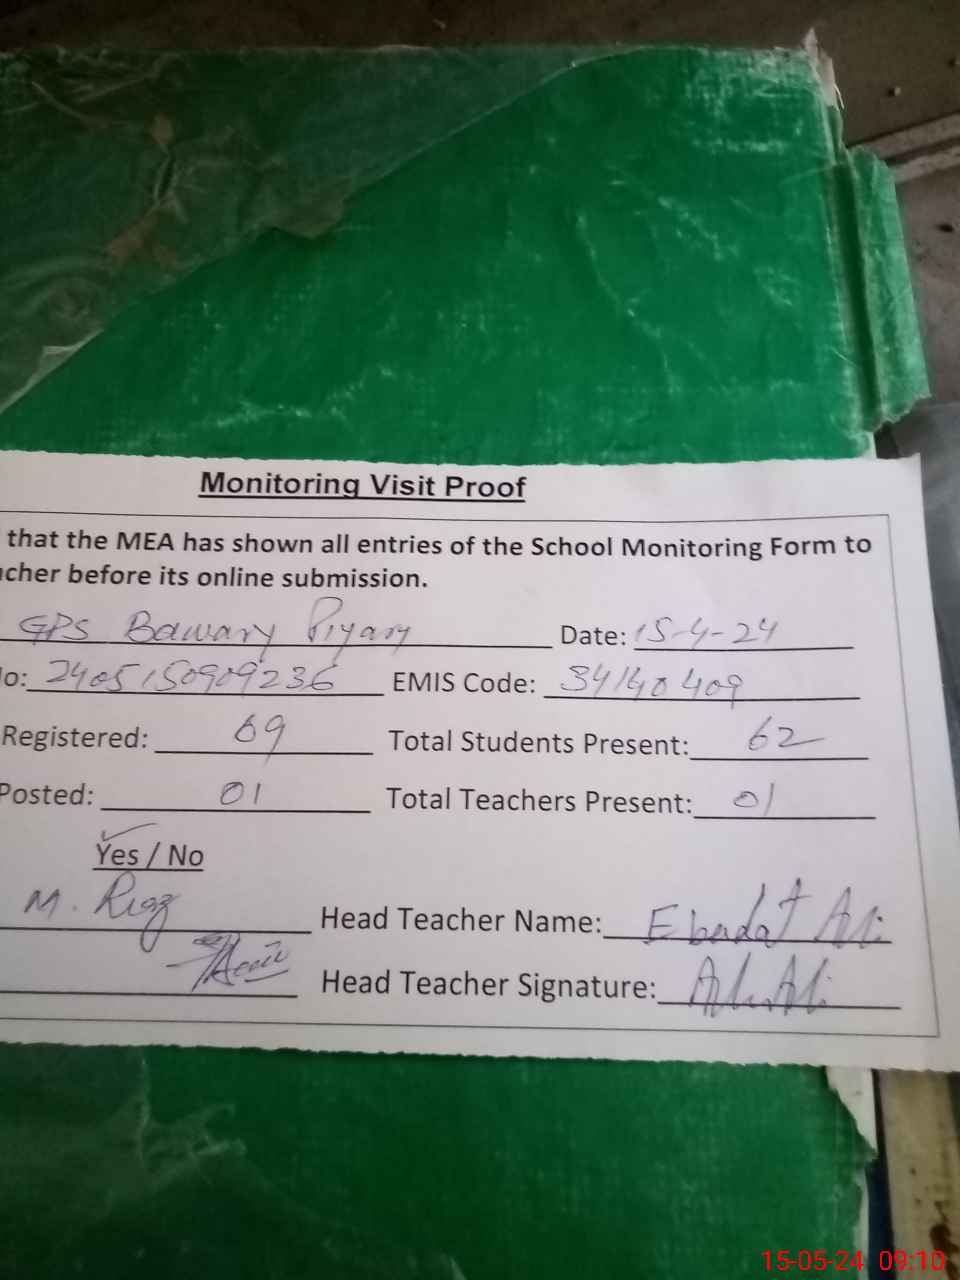 Monitoring Visit Proof
that the MEA has shown all entries of the School Monitoring Form to
acher before its online submission.
GPS Bawary Piyary Date: 15-4-24
No: 2405150909236 EMIS Code: 34140409
Registered: 69 Total Students Present: 62
Posted: 01 Total Teachers Present: 01
Yes / No
M. Riaz Head Teacher Name: Ebadat Ali
Head Teacher Signature:
15-05-24 09:10